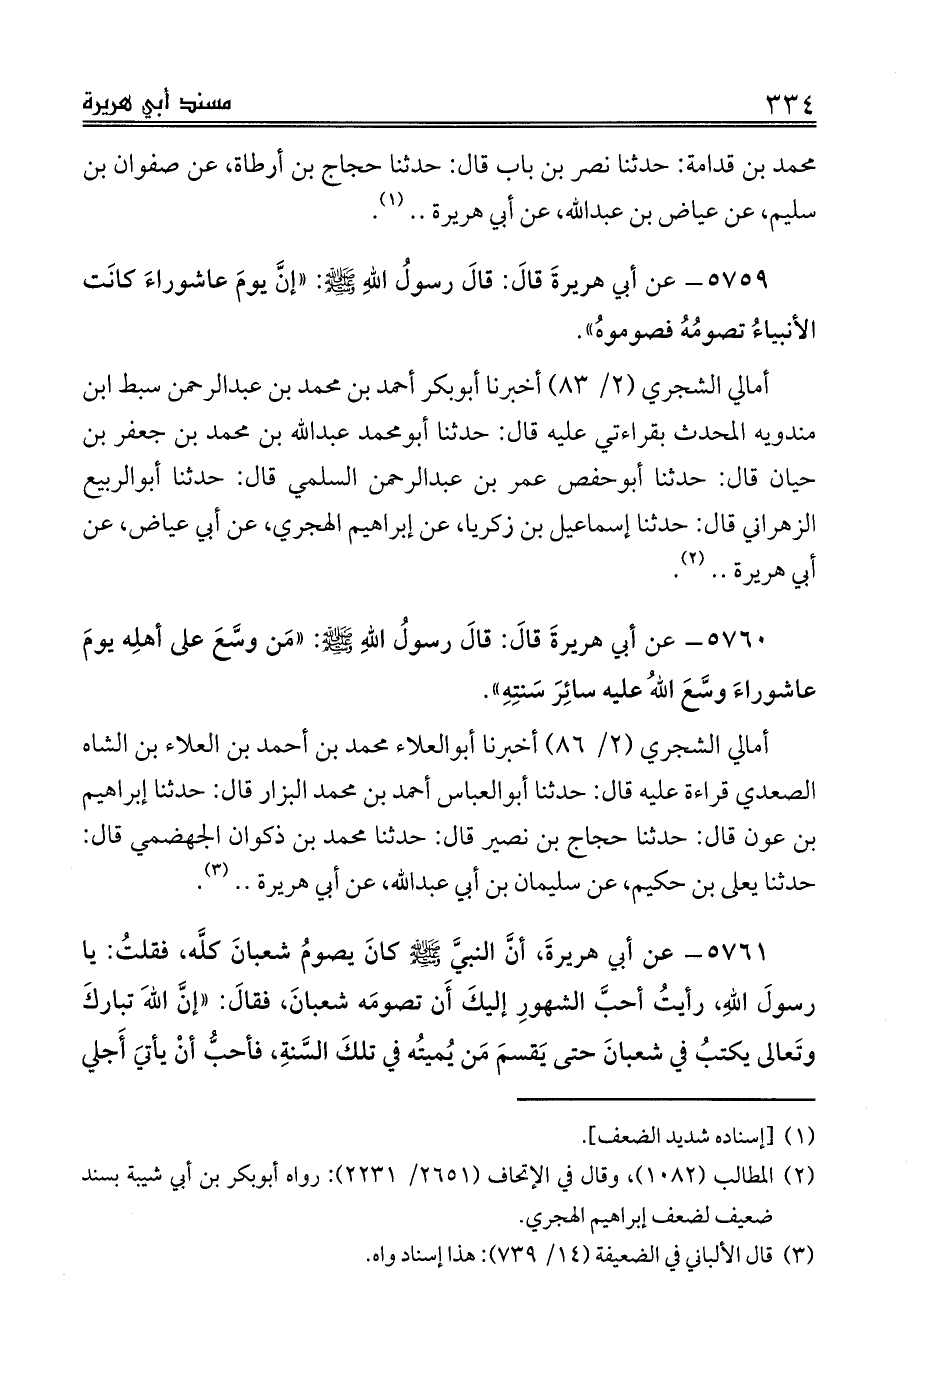 ٣٣٤ مسند أبي هريرة
محمد بن قدامة: حدثنا نصر بن باب قال: حدثنا حجاج بن أرطاة، عن صفوان بن
سليم، عن عياض بن عبدالله، عن أبي هريرة .. (١).
٥٧٥٩ – عن أبي هريرةَ قالَ: قالَ رسولُ اللهِ ﷺ: «إنَّ يومَ عاشوراءَ كانَت
الأنبياءُ تصومُهُ فصوموهُ».
أمالي الشجري (٢/ ٨٣) أخبرنا أبوبكر أحمد بن محمد بن عبدالرحمن سبط ابن
مندويه المحدث بقراءتي عليه قال: حدثنا أبومحمد عبدالله بن محمد بن جعفر بن
حيان قال: حدثنا أبوحفص عمر بن عبدالرحمن السلمي قال: حدثنا أبوالربيع
الزهراني قال: حدثنا إسماعيل بن زكريا، عن إبراهيم الهجري، عن أبي عياض، عن
أبي هريرة .. (٢).
٥٧٦٠ – عن أبي هريرةَ قالَ: قالَ رسولُ اللهِ ﷺ: «مَن وسَّعَ على أهلِه يومَ
عاشوراءَ وسَّعَ اللهُ عليه سائِرَ سَنتِهِ».
أمالي الشجري (٢/ ٨٦) أخبرنا أبوالعلاء محمد بن أحمد بن العلاء بن الشاه
الصعدي قراءة عليه قال: حدثنا أبوالعباس أحمد بن محمد البزار قال: حدثنا إبراهيم
بن عون قال: حدثنا حجاج بن نصير قال: حدثنا محمد بن ذكوان الجهضمي قال:
حدثنا يعلى بن حكيم، عن سليمان بن أبي عبدالله، عن أبي هريرة .. (٣).
٥٧٦١ – عن أبي هريرةَ، أنَّ النبيَّ ﷺ كانَ يصومُ شعبانَ كلَّه، فقلتُ: يا
رسولَ اللهِ، رأيتُ أحبَّ الشهورِ إليكَ أَن تصومَه شعبانَ، فقالَ: «إنَّ اللهَ تباركَ
وتَعالى يكتبُ في شعبانَ حتى يَقسمَ مَن يُميتُه في تلكَ السَّنةِ، فأحبُّ أنْ يأتيَ أَجلي
(١) [إسناده شديد الضعف].
(٢) المطالب (١٠٨٢)، وقال في الإتحاف (٢٦٥١/ ٢٢٣١): رواه أبوبكر بن أبي شيبة بسند
ضعيف لضعف إبراهيم الهجري.
(٣) قال الألباني في الضعيفة (١٤/ ٧٣٩): هذا إسناد واه.